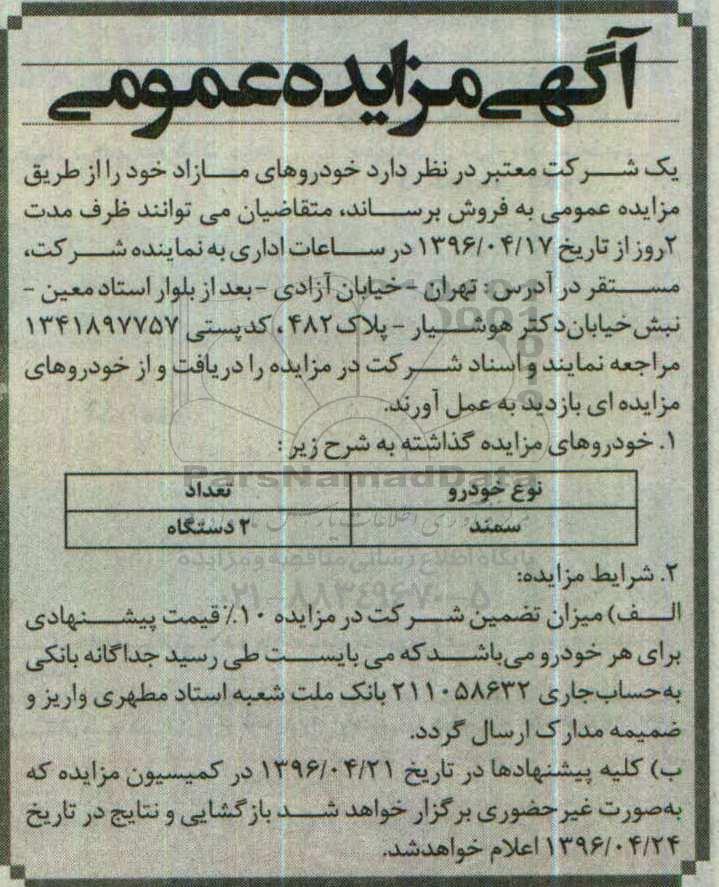 آگهی مزایده عمومی
یک شرکت معتبر در نظر دارد خودروهای مازاد خود را از طریق
مزایده عمومی به فروش برساند، متقاضیان می توانند ظرف مدت
۲روز از تاریخ ۱۳۹۶/۰۴/۱۷ در ساعات اداری به نماینده شرکت،
مستقر در آدرس: تهران - خیابان آزادی - بعد از بلوار استاد معین -
نبش خیابان دکتر هوشیار - پلاک ۴۸۲ ، کدپستی ۱۳۴۱۸۹۷۷۵۷
مراجعه نمایند و اسناد شرکت در مزایده را دریافت و از خودروهای
مزایده ای بازدید به عمل آورند.
۱. خودروهای مزایده گذاشته به شرح زیر :
ParsNamadData
نوع خودرو تعداد
سمند ۲ دستگاه
پایگاه اطلاع رسانی مناقصه و مزایده
۰۲۱-۸۸۳۴۹۶۷۰-۵
۲. شرایط مزایده:
الف) میزان تضمین شرکت در مزایده ۱۰٪ قیمت پیشنهادی
برای هر خودرو می‌باشد که می بایست طی رسید جداگانه بانکی
به‌حساب‌جاری ۲۱۱۰۵۸۶۳۲ بانک ملت شعبه استاد مطهری واریز و
ضمیمه مدارک ارسال گردد.
ب) کلیه پیشنهادها در تاریخ ۱۳۹۶/۰۴/۲۱ در کمیسیون مزایده که
به‌صورت غیرحضوری برگزار خواهد شد بازگشایی و نتایج در تاریخ
۱۳۹۶/۰۴/۲۴ اعلام خواهدشد.